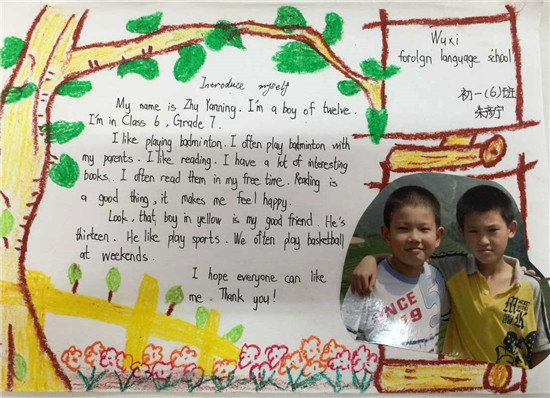 Wuxi
foroIgn language school
初一(6)班
Introduce myself
My name is Zhu Yanning. I'm a boy of twelve.
I'm in Class 6, Grade 7.
I like playing badminton. I often play badminton with
my parents. I like reading. I have a lot of interesting
books. I often read them in my free time. Reading is
a good thing, it makes me feel happy.
Look, that boy in yellow is my good friend. He's
thirteen. He like play sports. We often play basketball
at weekends.
I hope everyone can like
me. Thank you!
SINCE
19